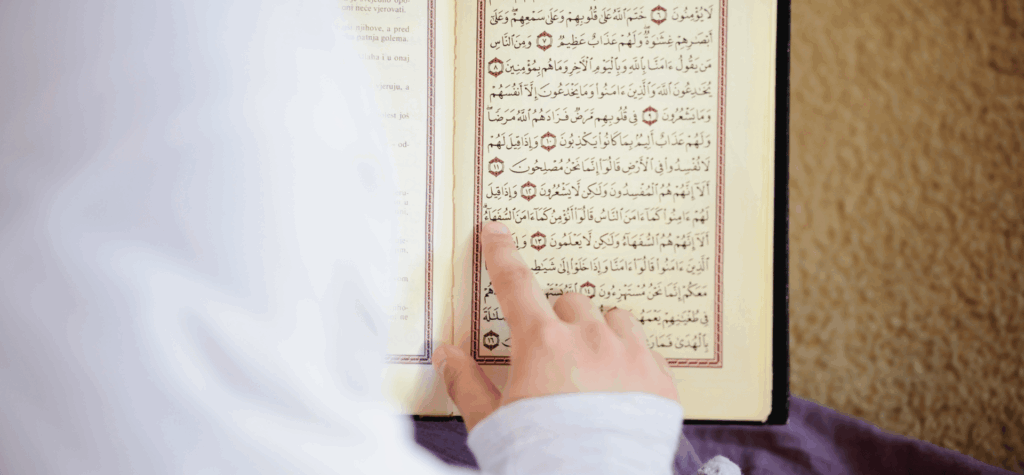 ni neće vjerovati.
njihove, a pred
patnja golema.
i u onaj
a
još
od-
se
لَا يُؤْمِنُونَ ٦ خَتَمَ ٱللَّهُ عَلَىٰ قُلُوبِهِمْ وَعَلَىٰ سَمْعِهِمْ ۖ وَعَلَىٰٓ
أَبْصَـٰرِهِمْ غِشَـٰوَةٌ ۖ وَلَهُمْ عَذَابٌ عَظِيمٌ ٧ وَمِنَ ٱلنَّاسِ
مَن يَقُولُ ءَامَنَّا بِٱللَّهِ وَبِٱلْيَوْمِ ٱلْـَٔاخِرِ وَمَا هُم بِمُؤْمِنِينَ ٨
يُخَـٰدِعُونَ ٱللَّهَ وَٱلَّذِينَ ءَامَنُوا۟ وَمَا يَخْدَعُونَ إِلَّآ أَنفُسَهُمْ
وَمَا يَشْعُرُونَ ٩ فِى قُلُوبِهِم مَّرَضٌ فَزَادَهُمُ ٱللَّهُ مَرَضًا ۖ
وَلَهُمْ عَذَابٌ أَلِيمٌۢ بِمَا كَانُوا۟ يَكْذِبُونَ ١٠ وَإِذَا قِيلَ لَهُمْ
لَا تُفْسِدُوا۟ فِى ٱلْأَرْضِ قَالُوٓا۟ إِنَّمَا نَحْنُ مُصْلِحُونَ ١١
أَلَآ إِنَّهُمْ هُمُ ٱلْمُفْسِدُونَ وَلَـٰكِن لَّا يَشْعُرُونَ ١٢ وَإِذَا قِيلَ
لَهُمْ ءَامِنُوا۟ كَمَآ ءَامَنَ ٱلنَّاسُ قَالُوٓا۟ أَنُؤْمِنُ كَمَآ ءَامَنَ ٱلسُّفَهَآءُ ۗ
أَلَآ إِنَّهُمْ هُمُ ٱلسُّفَهَآءُ وَلَـٰكِن لَّا يَعْلَمُونَ ١٣
ٱلَّذِينَ ءَامَنُوا۟ قَالُوٓا۟ ءَامَنَّا وَإِذَا خَلَوْا۟ إِلَىٰ
مَعَكُمْ إِنَّمَا نَحْنُ مُسْتَهْزِءُونَ ١٤
فِى طُغْيَـٰنِهِمْ يَعْمَهُونَ
بِٱلْهُدَىٰ فَمَا ١٦